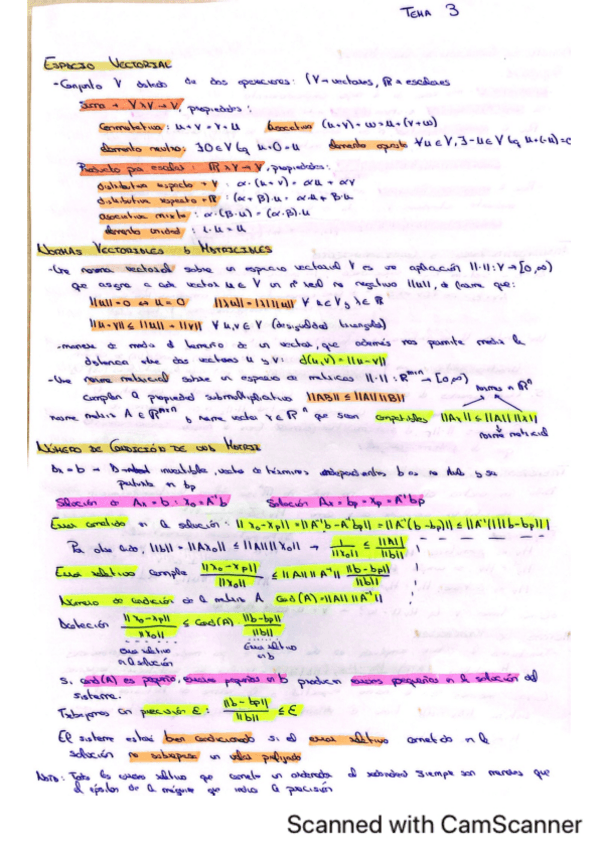 TEMA 3
ESPACIO VECTORIAL
- Conjunto V dotado de dos operaciones: (V → vectores, R → escalares
Suma + V×V → V, propiedades:
Conmutativa: u+v = v+u Asociativa (u+v)+w = u+(v+w)
Elemento neutro: ∃0∈V tq u+0=u Elemento opuesto ∀u∈V, ∃-u∈V tq u+(-u)=0
Producto por escalar: R×V → V, propiedades:
distributiva respecto + V: α·(u+v) = αu + αv
distributiva respecto + R: (α+β)·u = α·u + β·u
asociativa mixta: α·(β·u) = (α·β)·u
elemento unidad: 1·u = u
NORMAS VECTORIALES Y MATRICIALES
- Una norma vectorial sobre un espacio vectorial V es una aplicación ||·||: V → [0,∞)
que asigna a cada vector u∈V un nº real no negativo ||u||, de forma que:
||u|| = 0 ⇔ u = 0 ||λu|| = |λ| ||u|| ∀ u∈V y λ∈R
||u+v|| ≤ ||u|| + ||v|| ∀ u,v∈V (desigualdad triangular)
- manera de medir el tamaño de un vector, que además nos permite medir la
distancia entre dos vectores u y v: d(u,v) = ||u-v||
- Una norma matricial sobre un espacio de matrices ||·||: R^mxn → [0,∞)
cumplen la propiedad submultiplicativa ||AB|| ≤ ||A|| ||B|| norma en R^n
norma matriz A∈R^mxn y norma vector x∈R^n que sean compatibles ||Ax|| ≤ ||A|| ||x||
norma matricial
NÚMERO DE CONDICIÓN DE UNA MATRIZ
Ax = b → invertible, vector de términos independientes b y se
perturba en bp
Solución de Ax = b: x₀ = A⁻¹b Solución Ax = bp → xp = A⁻¹bp
Error cometido en la solución: ||x₀-xp|| = ||A⁻¹b - A⁻¹bp|| = ||A⁻¹(b-bp)|| ≤ ||A⁻¹|| ||b-bp||
Por otro lado, ||b|| = ||Ax₀|| ≤ ||A|| ||x₀|| → 1/||x₀|| ≤ ||A||/||b||
Error relativo cumple ||x₀-xp||/||x₀|| ≤ ||A|| ||A⁻¹|| ||b-bp||/||b||
Número de condición de la matriz A cond(A) = ||A|| ||A⁻¹||
Acotación ||x₀-xp||/||x₀|| ≤ cond(A) ||b-bp||/||b||
error relativo Error relativo
en la solución en b
Si cond(A) es pequeño, errores pequeños en b producen errores pequeños en la solución del
sistema.
Trabajamos con precisión ε: ||b-bp||/||b|| ≤ ε
El sistema estará bien condicionado si el error relativo cometido en la
solución no sobrepasa un valor prefijado
Nota: Todos los errores relativos que comete un ordenador al redondear siempre son menores que
el épsilon de la máquina que indica la precisión
Scanned with CamScanner